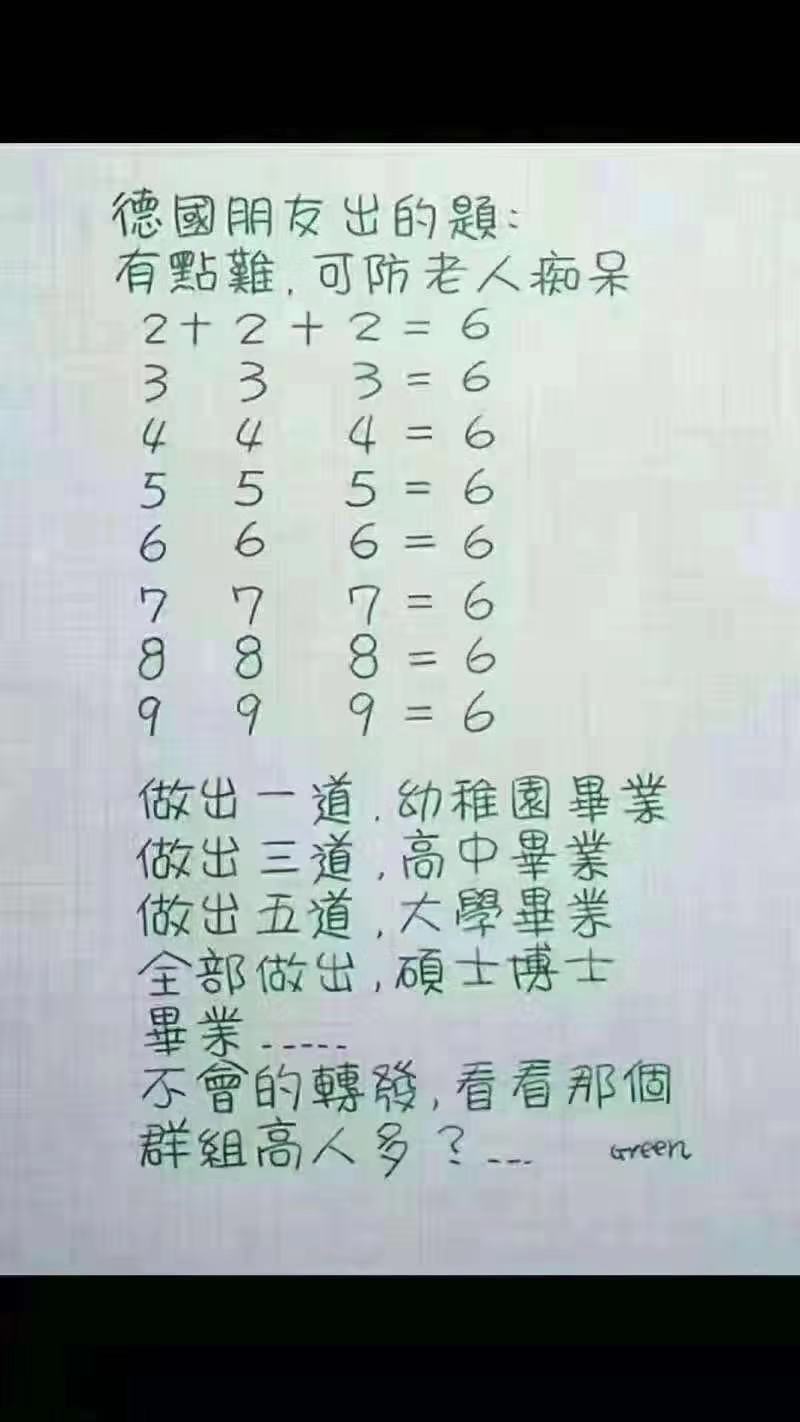 德國朋友出的題:
有點難,可防老人痴呆
2+2+2=6
3 3 3=6
4 4 4=6
5 5 5=6
6 6 6=6
7 7 7=6
8 8 8=6
9 9 9=6
做出一道,幼稚園畢業
做出三道,高中畢業
做出五道,大學畢業
全部做出,碩士博士
畢業-----
不會的轉發,看看那個
群組高人多?--- Green